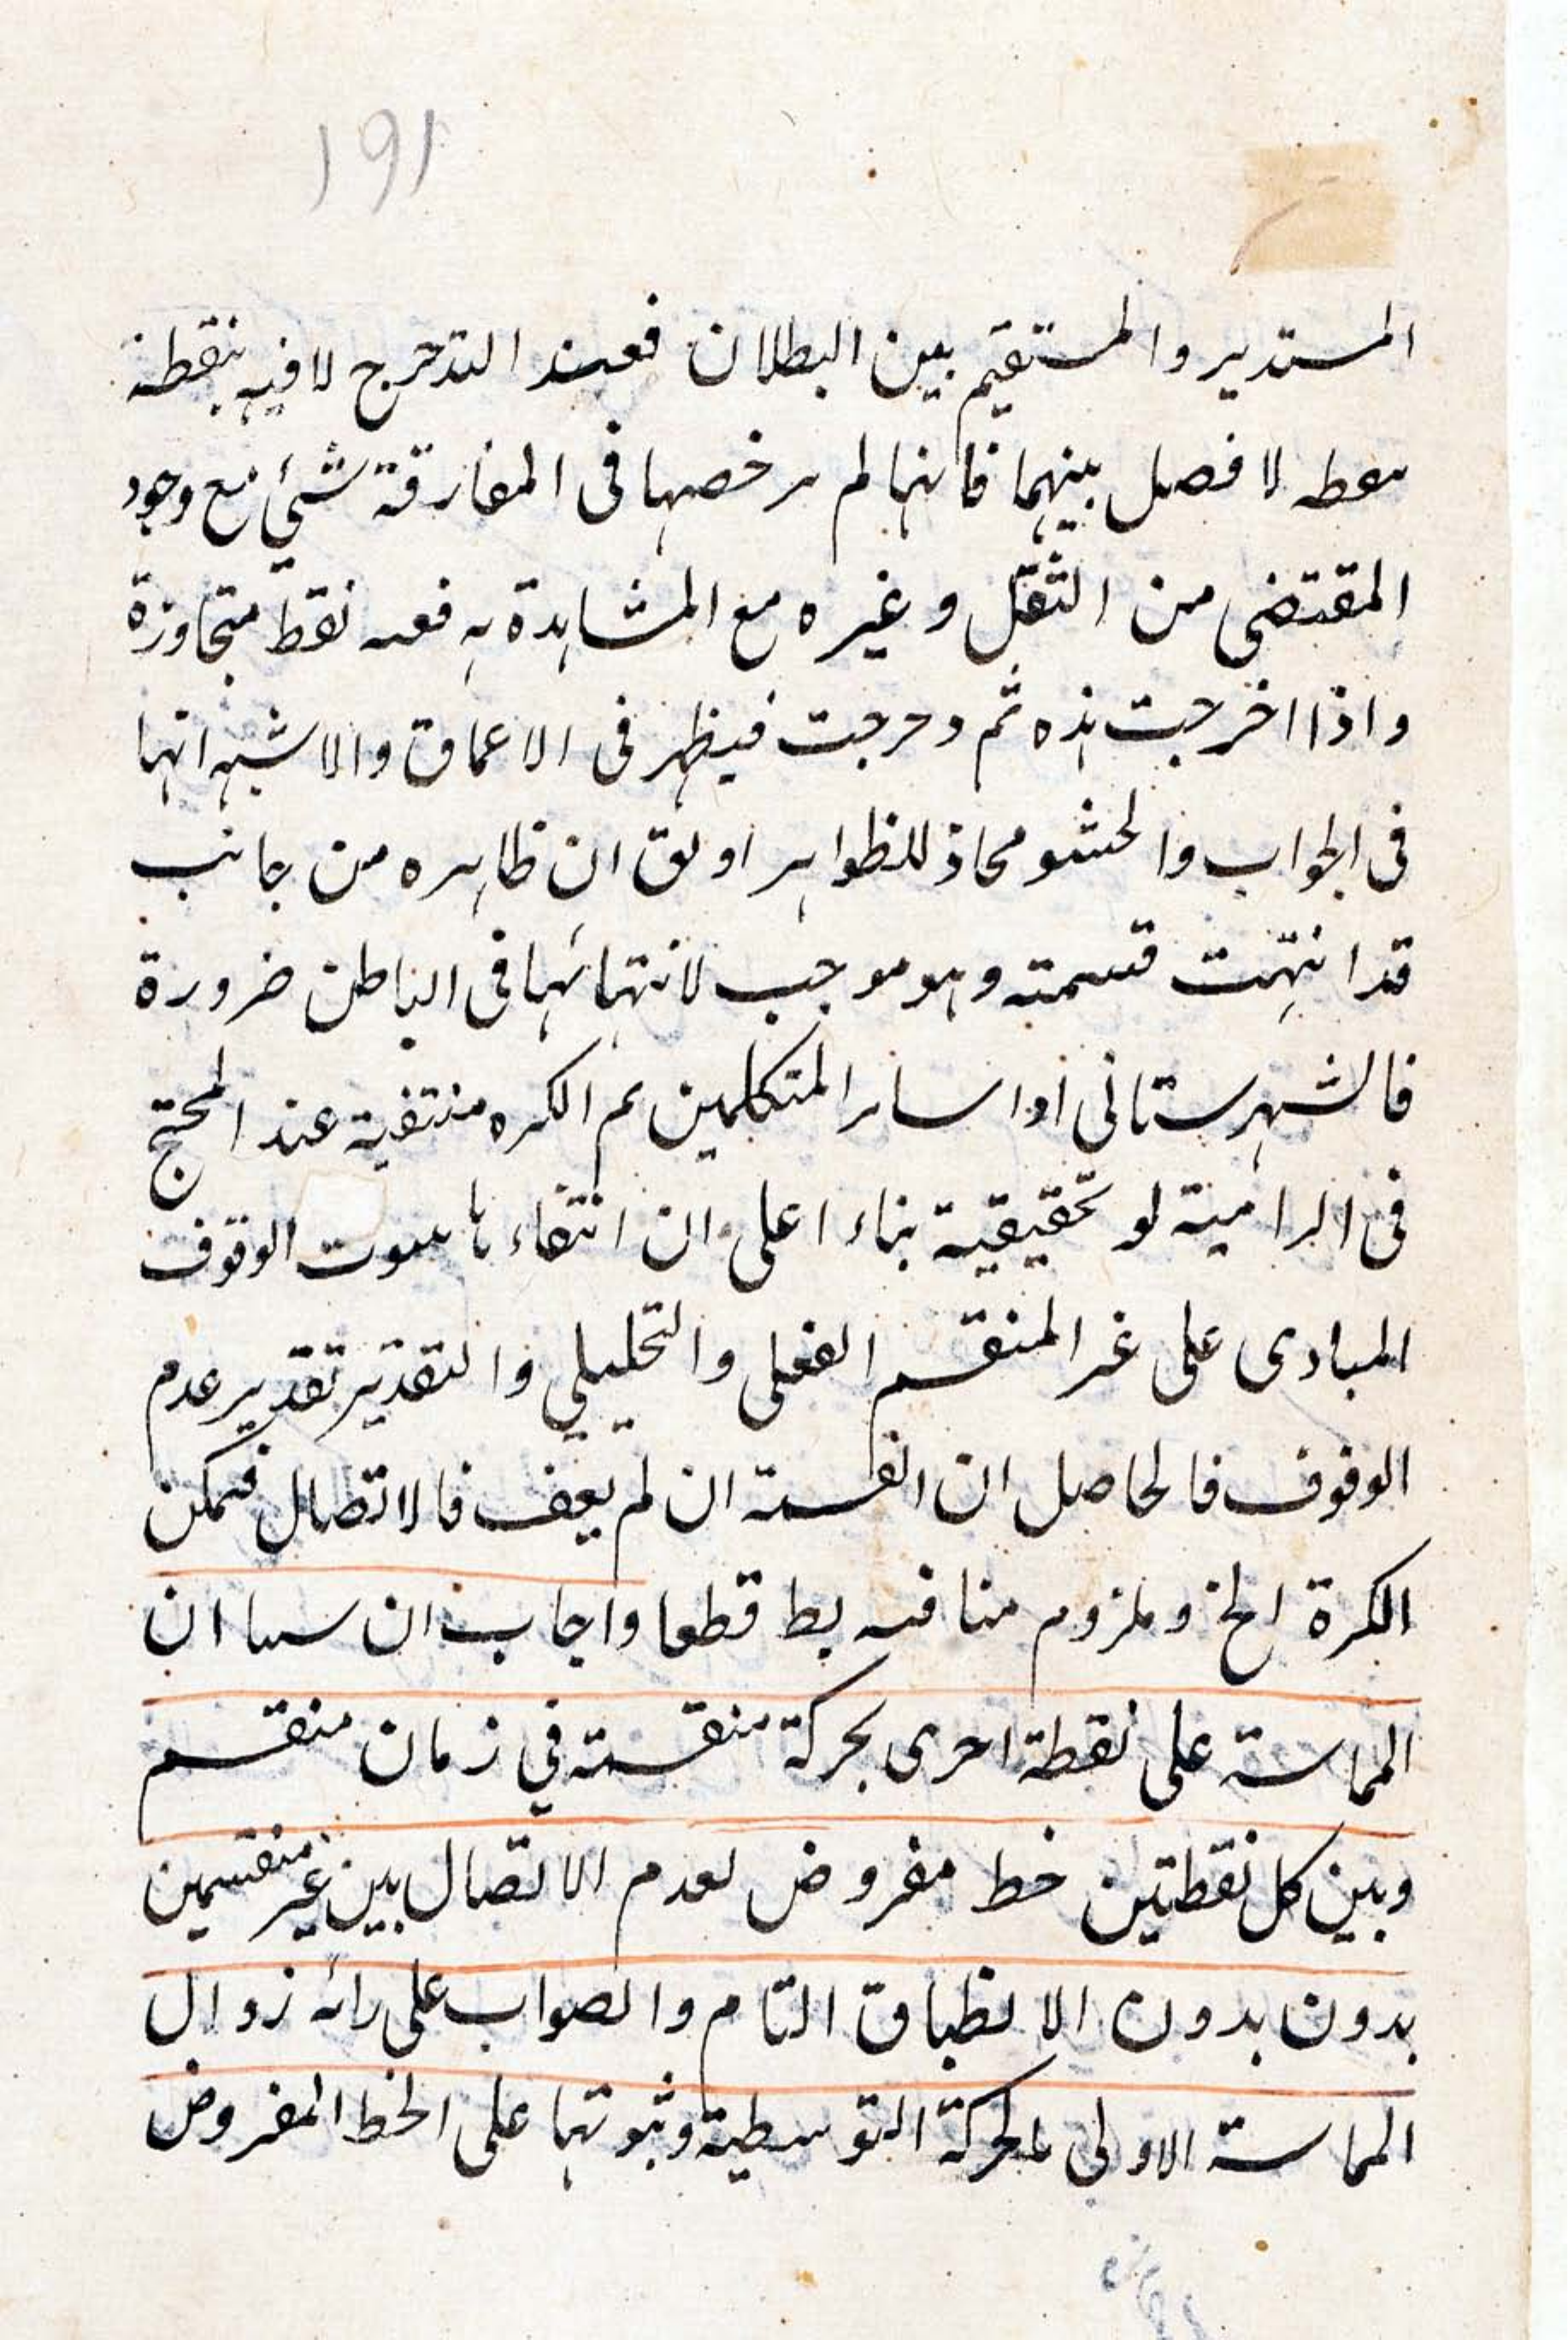 ١٩١
المستدير والمستقيم بين البطلان فعند التدحرج لاقيه بنقطة
معطه لا فصل بينهما فانهما لم ير خصها فى المفارقة شئ مع وجود
المقتضى من الثقل وغيره مع المشاهدة به فعىه نقط متجاوزة
واذا اخرجت هذه ثم دحرجت فيظهر فى الاعماق والاشبه انها
فى الجواب والحشو محاذ للظواهر او لق ان ظاهره من جانب
قد انتهت قسمته وهو موجب لانتهائها فى الباطن ضرورة
فالشهرستانى او اساىر المتكلمين ىم الكره منتفية عند المحتج
فى الرامية لو تحقيقية بناء اعلى ان انتفاءها الوقوف
المبادى على غير المنقسم الفعلى والتحليلي والتقدير تقدير عدم
الوقوف فالحاصل ان القسمة ان لم يقف فالاتصال فيمكن
الكرة الخ وملزوم منافيه بط قطعا واجاب ان سىىا ان
المماسة على نقطة اخرى بحركة منقسمة في زمان منقسم
وبين كل نقطتين خط مفروض لعدم الاتصال بين غير منقسمين
بدون بدون الانطباق التام والصواب على رائه زوال
المماسة الاولى بالحركة التوسطية وثبوتها على الخط المفروض